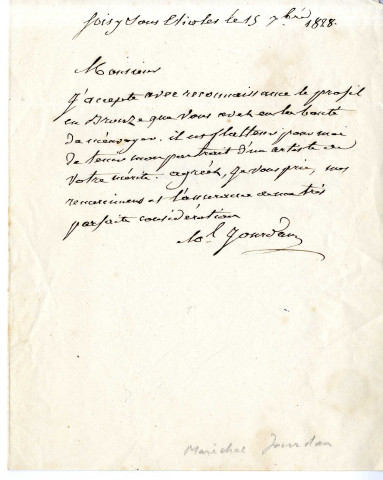 Soisy Sous Etioles le 15 7bre 1828.
Monsieur
J'accepte avec reconnaissance le profil
en Bronze que vous avez eu la bonté
de m'envoyer. il est flatteur pour moi
de tenir mon portrait d'un artiste de
votre mérite. agréez, je vous prie, mes
remerciemens et l'assurance de ma très
parfaite considération
M.al Jourdan
Maréchal Jourdan